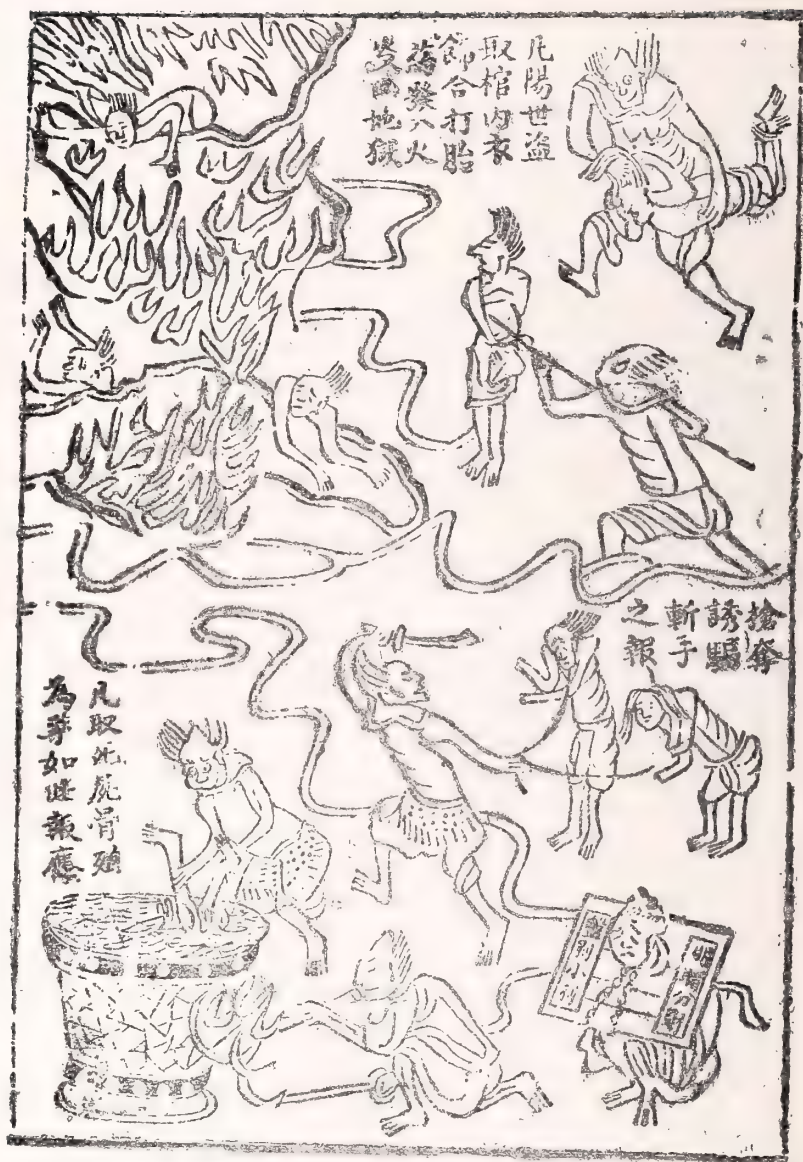 凡陽世盜
取棺內衣
飾合打胎
發入火
地獄
搶奪
誘騙
斬手
之報
凡取死屍骨殖
為如此報應